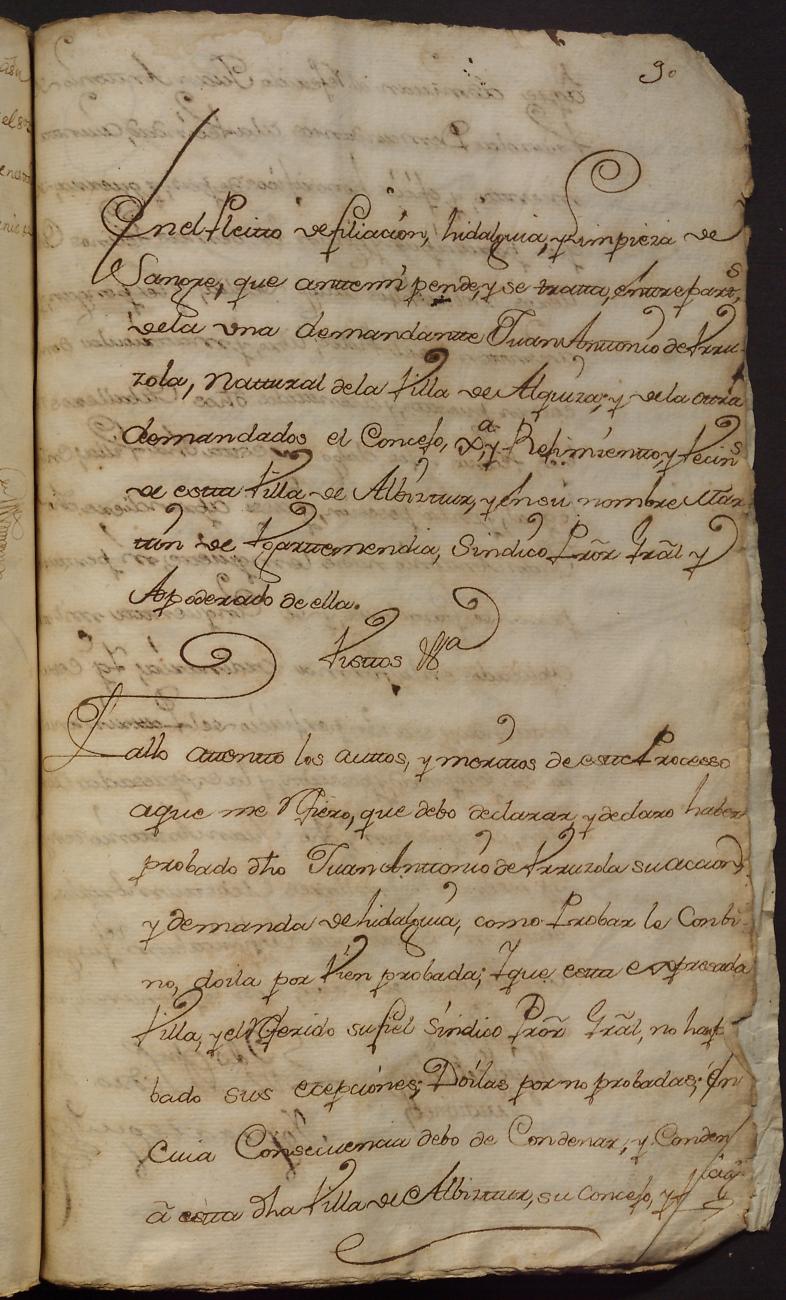 90
En el Pleitto de filiación, hidalguia, y Limpieza de
Sangre, que anttemi pende, y se tratta, enttre parts,
de la vna demandantte Juan Anttonio de Vrru-
zola, Nattural de la Villa de Alquiza; y de la ottra
demandados el Concejo, y Rejimientto, y Vecins
de estta Villa de Albisttur, y en su nombre Mar
ttin de Vgarttemendia, Sindico Pror Gral y
Apoderado de ella.
Visttos &a
Fallo attentto los auttos, y merittos de estte Processo
aque me refiero, que debo declarar, y declaro haber
probado dho Juan Anttonio de Vrruzola su accion,
y demanda de hidalguia, como Probar le Conbi-
no, doila por Vien probada; Y que estta expresada
Villa, y el referido su fiel Sindico Pror Gral, no ha
bado sus excepciones; Doilas por no probadas; En
Cuia Consecuencia debo de Condenar, y Conden
â estta dha Villa de Albisttur, su Concejo, y